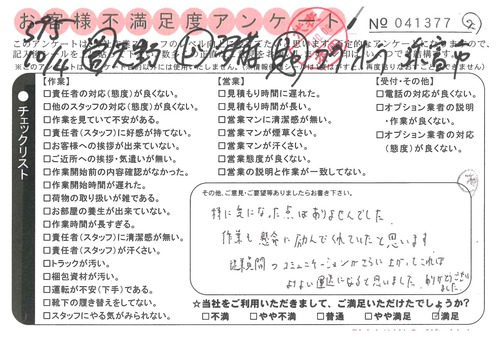 お客様不満足度アンケート
№ 041377
チェックリスト
【作業】
□責任者の対応(態度)が良くない。
□他のスタッフの対応(態度)が良くない。
□作業を見ていて不安がある。
□責任者(スタッフ)に好感が持てない。
□お客様への挨拶が出来ていない。
□ご近所への挨拶・気遣いが無い。
□作業開始前の内容確認がなかった。
□作業開始時間が遅れた。
□荷物の取り扱いが雑である。
□お部屋の養生が出来ていない。
□作業時間が長すぎる。
□責任者(スタッフ)に清潔感が無い。
□責任者(スタッフ)が汗くさい。
□トラックが汚い。
□梱包資材が汚い。
□運転が不安(下手)である。
□靴下の履き替えをしてない。
□スタッフにやる気がみられない。
【営業】
□見積もり時間に遅れた。
□見積もり時間が長い。
□営業マンに清潔感が無い。
□営業マンが煙草くさい。
□営業マンが汗くさい。
□営業態度が良くない。
□営業の説明と作業が一致してない。
【受付・その他】
□電話の対応が良くない。
□オプション業者の説明
・作業が良くない。
□オプション業者の対応
(態度)が良くない。
その他、ご意見・ご要望等ありましたらお書き下さい。
特に気になった点はありませんでした。
作業も懸命に励んでくれていたと思います。
従業員間のコミュニケーションがさらに上がってくれば
よい運送になると思いました。ありがとうございました。
☆当社をご利用いただきまして、ご満足いただけたでしょうか?
□不満 □やや不満 □普通 □やや満足 ☑満足